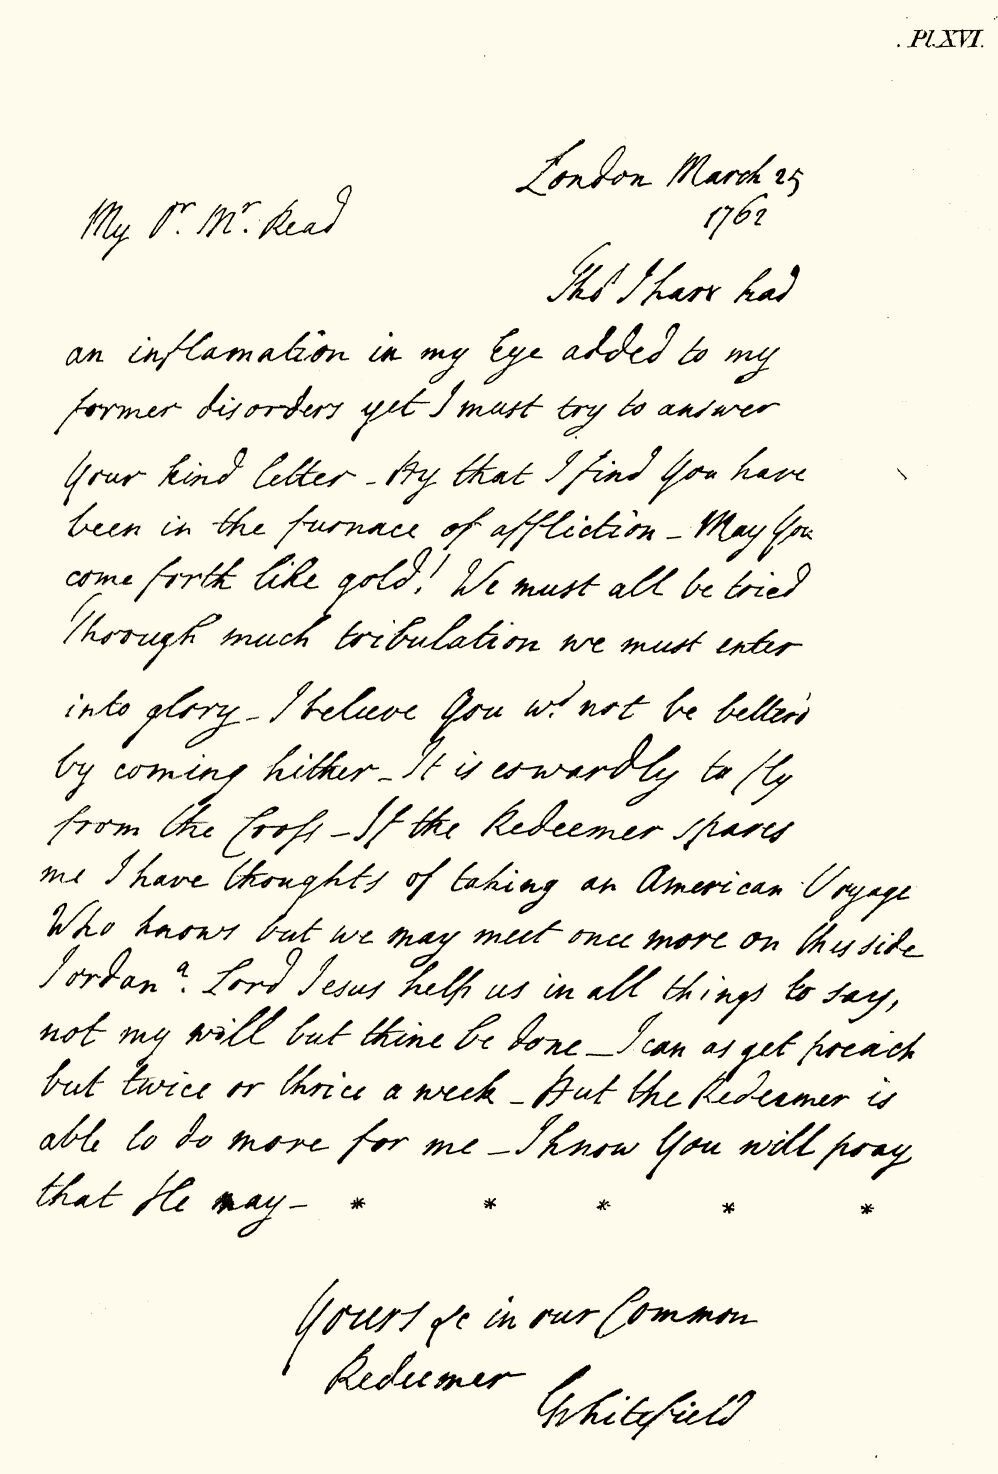 Pl. XVI.
London March 25
1762
My Dr. Mr. Read
Tho' I have had
an inflamation in my Eye added to my
former disorders yet I must try to answer
Your kind letter - By that I find You have
been in the furnace of affliction - May You
come forth like gold! We must all be tried
Through much tribulation we must enter
into glory - I believe You wd. not be better'd
by coming hither - It is cowardly to fly
from the Cross - If the Redeemer spares
me I have thoughts of taking an American Voyage
Who knows but we may meet once more on this side
Jordan? Lord Jesus help us in all things to say,
not my will but thine be done - I can as yet preach
but twice or thrice a week - But the Redeemer is
able to do more for me - I know You will pray
that He may - * * * * *
Yours &c in our Common
Redeemer
GWhitefield